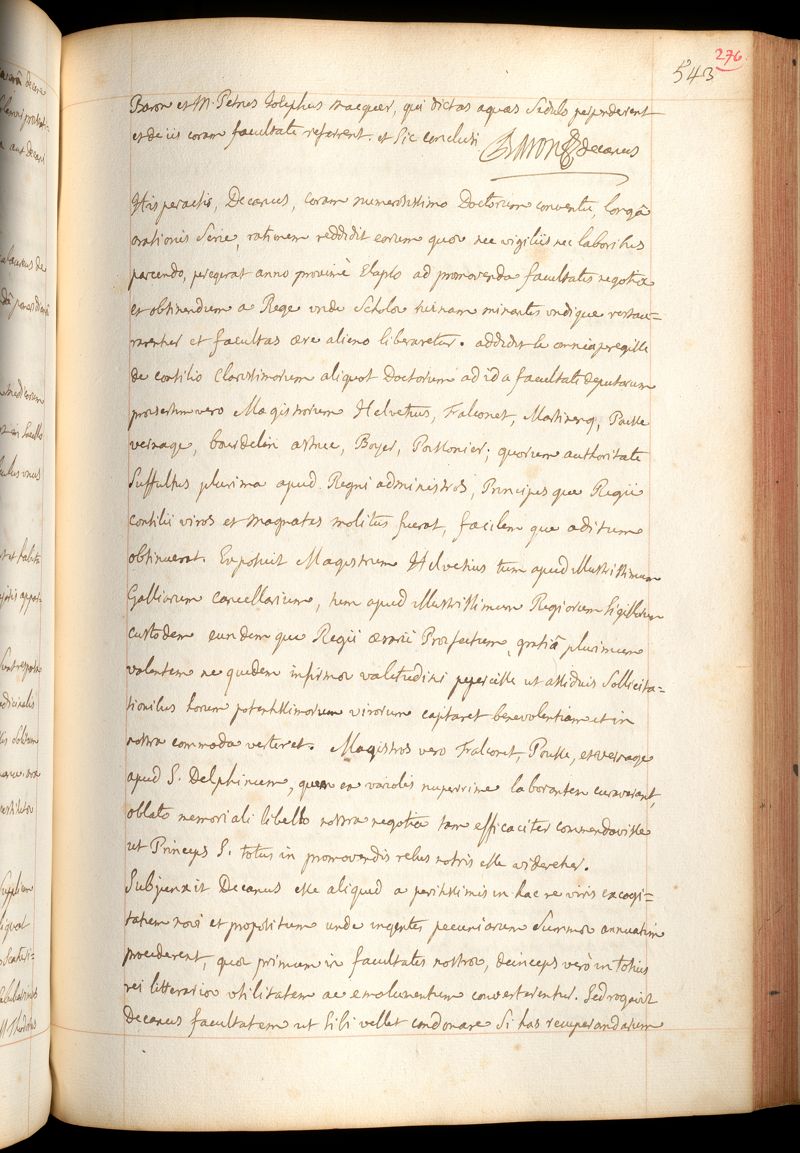 276
543
Baron et M. Petrus Josephus macquer, qui dictas aquas sedulo perpenderent
et de iis coram facultate referrent. et sic conclusi Baron decanus
His peractis, Decanus, coram numerosissimo Doctorum conventu, longâ
orationis serie, rationem reddidit eorum quae nec vigiliis nec laboribus
parcendo, peregerat anno proximè elapso ad promovenda facultatis negotia
et obtinendum a Rege unde scholae ruinam minantes undique restau=
rarentur et facultas aere alieno liberaretur. addidit se omnia peregisse
de consilio clarissimorum aliquot Doctorum ad id a facultate deputatorum
praesertim vero Magistrorum Helvetius, Falconet, Martinenq, Pousse
vernage, bourdelin astruc, Boyer, Poissonier; quorum authoritate
suffultus plurima apud Regni administros, Principes que Regii
consilii viros et magnates molitus fuerat, facilem que aditum
obtinuerat. Exposuit Magistrum Helvetius tum apud illustrissimum
Galliarum cancellarium, tum apud illustrissimum Regiorum sigillorum
custodem eundem que Regii aerarii Praefectum, gratiâ plurimum
valentem ne quidem infirmae valetudini pepercisse ut assiduis sollicita=
tionibus horum potentissimorum virorum captaret benevolentiam et in
nostra commoda verteret. Magistros vero Falconet, Pousse, et vernage
apud S. Delphinum, quem ex variolis nuperrime laborantem curaverant,
oblato memoriali libello nostra negotia tam efficaciter commendavisse
ut Princeps S. totus in promovendis rebus nostris esse videretur.
Subjunxit Decanus esse aliquid a peritissimis in hac re viris excogi=
tatum novi et propositum unde ingentes pecuniarum summae annuatim
procederent, quae primum in facultatis nostrae, deinceps verò in totius
rei litterariae utilitatem ac emolumentum converterentur. Sed rogavit
Decanus facultatem ut sibi vellet condonare si has recuperandarum